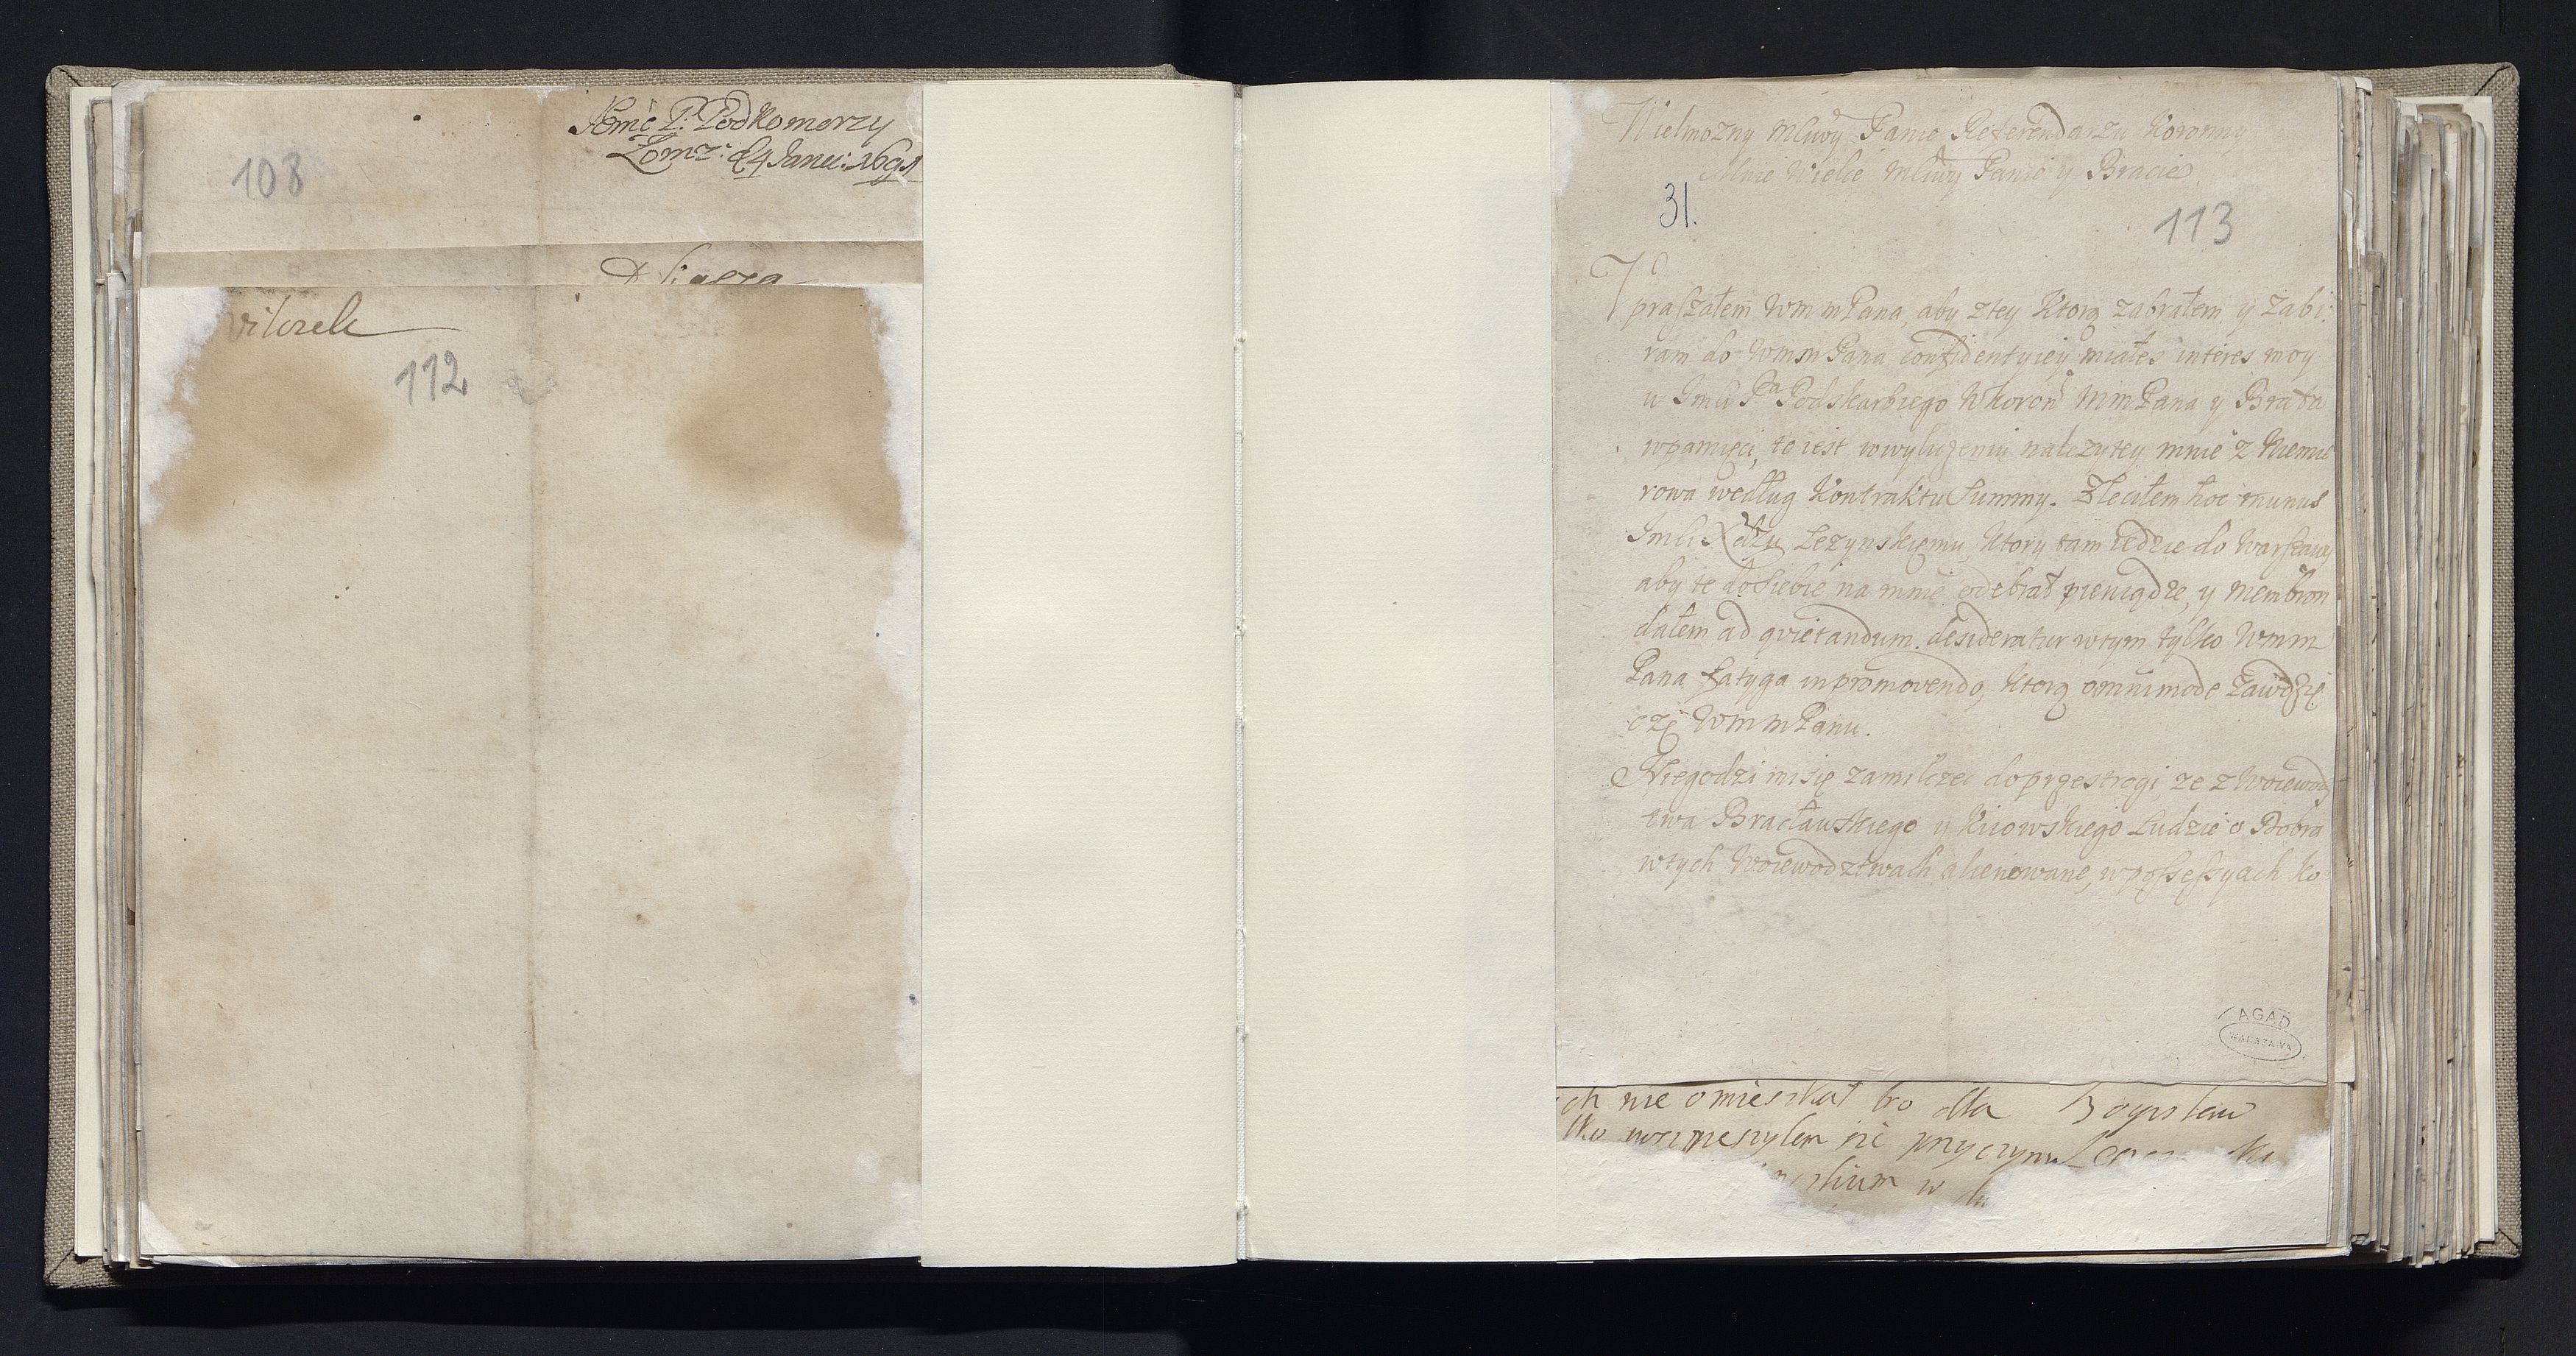 Jemć P: Podkomorzy
Łomz: d 4 Januu: 1691
108
vitorek
112
Wielmozny Mlwy Panie Referendarzu Koronny
Mnie Wielce Mlwy Panie y Bracie
31.
113
Upraszałem WmmPana, aby z tey ktorą zabrałem y zabi:
ram do WmmPana confidentyiey miałes interes moy
u Jmci Pa Podskarbiego W Koron MmPana y Brata
w pamięci, to iest w wyliczeniu nalezytey mnie z Niemi
rowa według Kontraktu Summy. Zleciłem hoc munus
Jmci Xdzu Lezynskiemu, ktory tam iedzie do Warszawy
aby te do siebie na mnie odebrał pieniądze, y membran
dałem ad qvietandum. desideratur w tym tylko Wmm
Pana fatyga in promovendo, ktorą omnimode zawdzię
czę WmmPanu.
Niegodzi mi się zamilczec do przestrogi, ze z Woiewodz
twa Bracławskiego y Kiiowskiego Ludzie o Dobra
w tych Woiewodztwach alienowane, w possessyach ko
AGAD
WARSZAWA
ch nie omieszkał bo dla
przyczyn
w